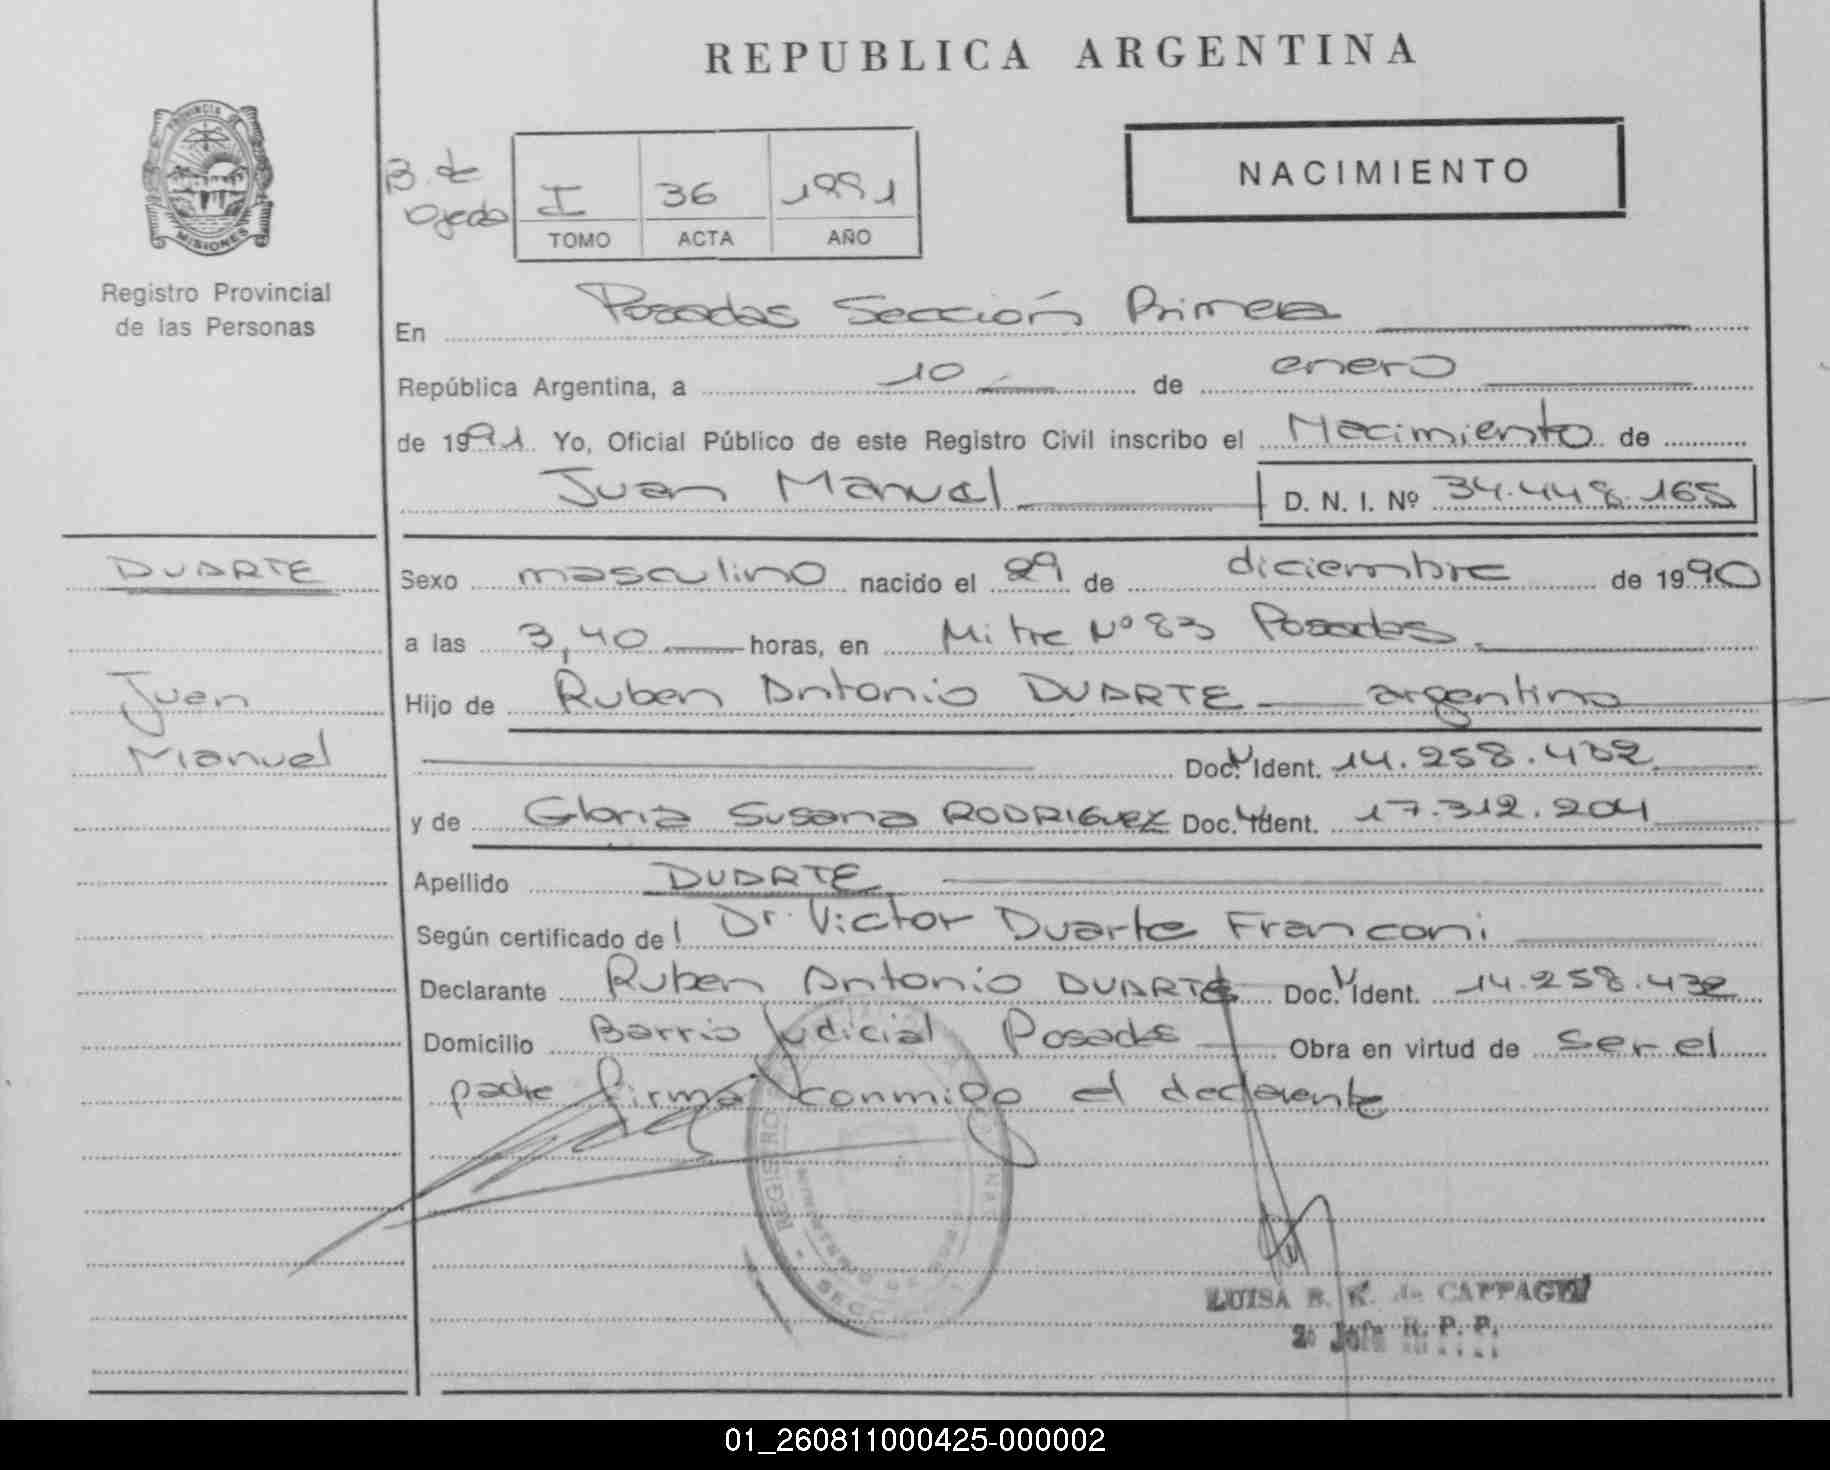 REPUBLICA ARGENTINA
PROVINCIA DE
MISIONES
Registro Provincial
de las Personas
B. de
Ojeda
I 36 1991
TOMO ACTA AÑO
NACIMIENTO
En Posadas Sección Primera
República Argentina, a 10 de enero
de 1991 Yo, Oficial Público de este Registro Civil inscribo el Nacimiento de
Juan Manuel D. N. I. Nº 34.448.165
DUARTE
Juan
Manuel
Sexo masculino nacido el 29 de diciembre de 1990
a las 3,40 horas, en Mitre Nº 83 Posadas.
Hijo de Ruben Antonio DUARTE argentino
Doc. Ident. 14.258.432
y de Gloria Susana RODRIGUEZ Doc. Ident. 17.312.204
Apellido DUARTE
Según certificado del Dr. Victor Duarte Franconi
Declarante Ruben Antonio DUARTE Doc. Ident. 14.258.432
Domicilio Barrio Judicial Posadas Obra en virtud de ser el
padre firma conmigo el declarante
REGISTRO
SECCION
LUISA B. K. de
2º Jefe R. P. P.
01_260811000425-000002